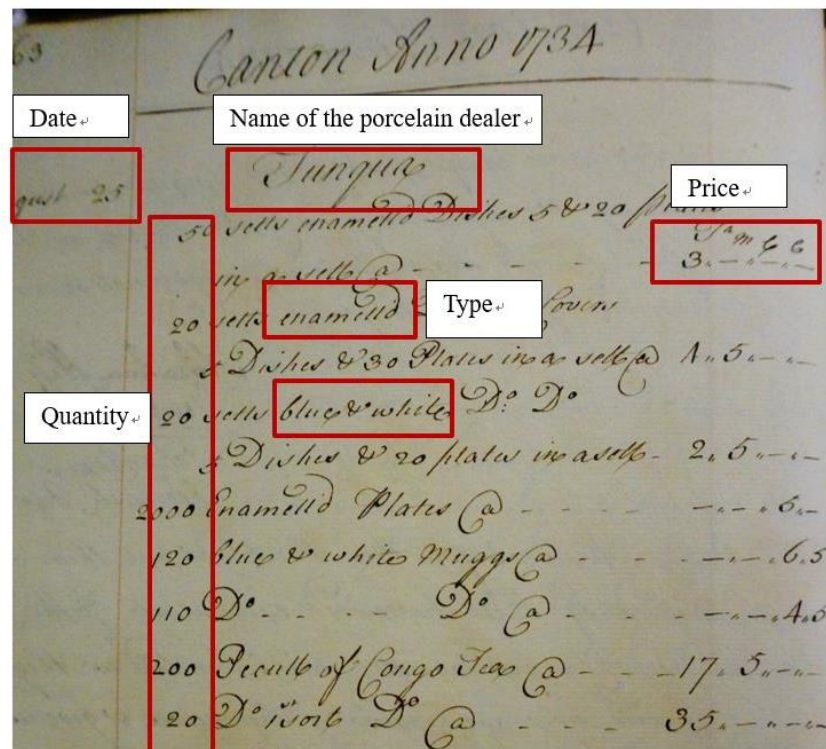 63
Canton Anno 1734
Date
Name of the porcelain dealer
Tunqua
gust 25
Price
50 setts enamelld Dishes 5 & 20 plates
Ta m C C
in a sett @ - - - - - 3 „ - „ - „ -
20 setts enamelld Covers
Type
5 Dishes & 30 Plates in a sett @ 4 „ 5 „ - „ -
Quantity
20 setts blue & white Do. Do
5 Dishes & 20 plates in a sett - 2 „ 5 „ - „ -
2000 Enamelld Plates @ - - - - „ - „ 6 „ -
120 blue & white Muggs @ - - - - „ - „ 6.5
110 Do - - - Do @ - - - - „ - „ 4.5
200 Pecull of Congo Tea @ - - - 17 „ 5 „ - „ -
20 Do Do @ - - - 35 „ - „ - „ -